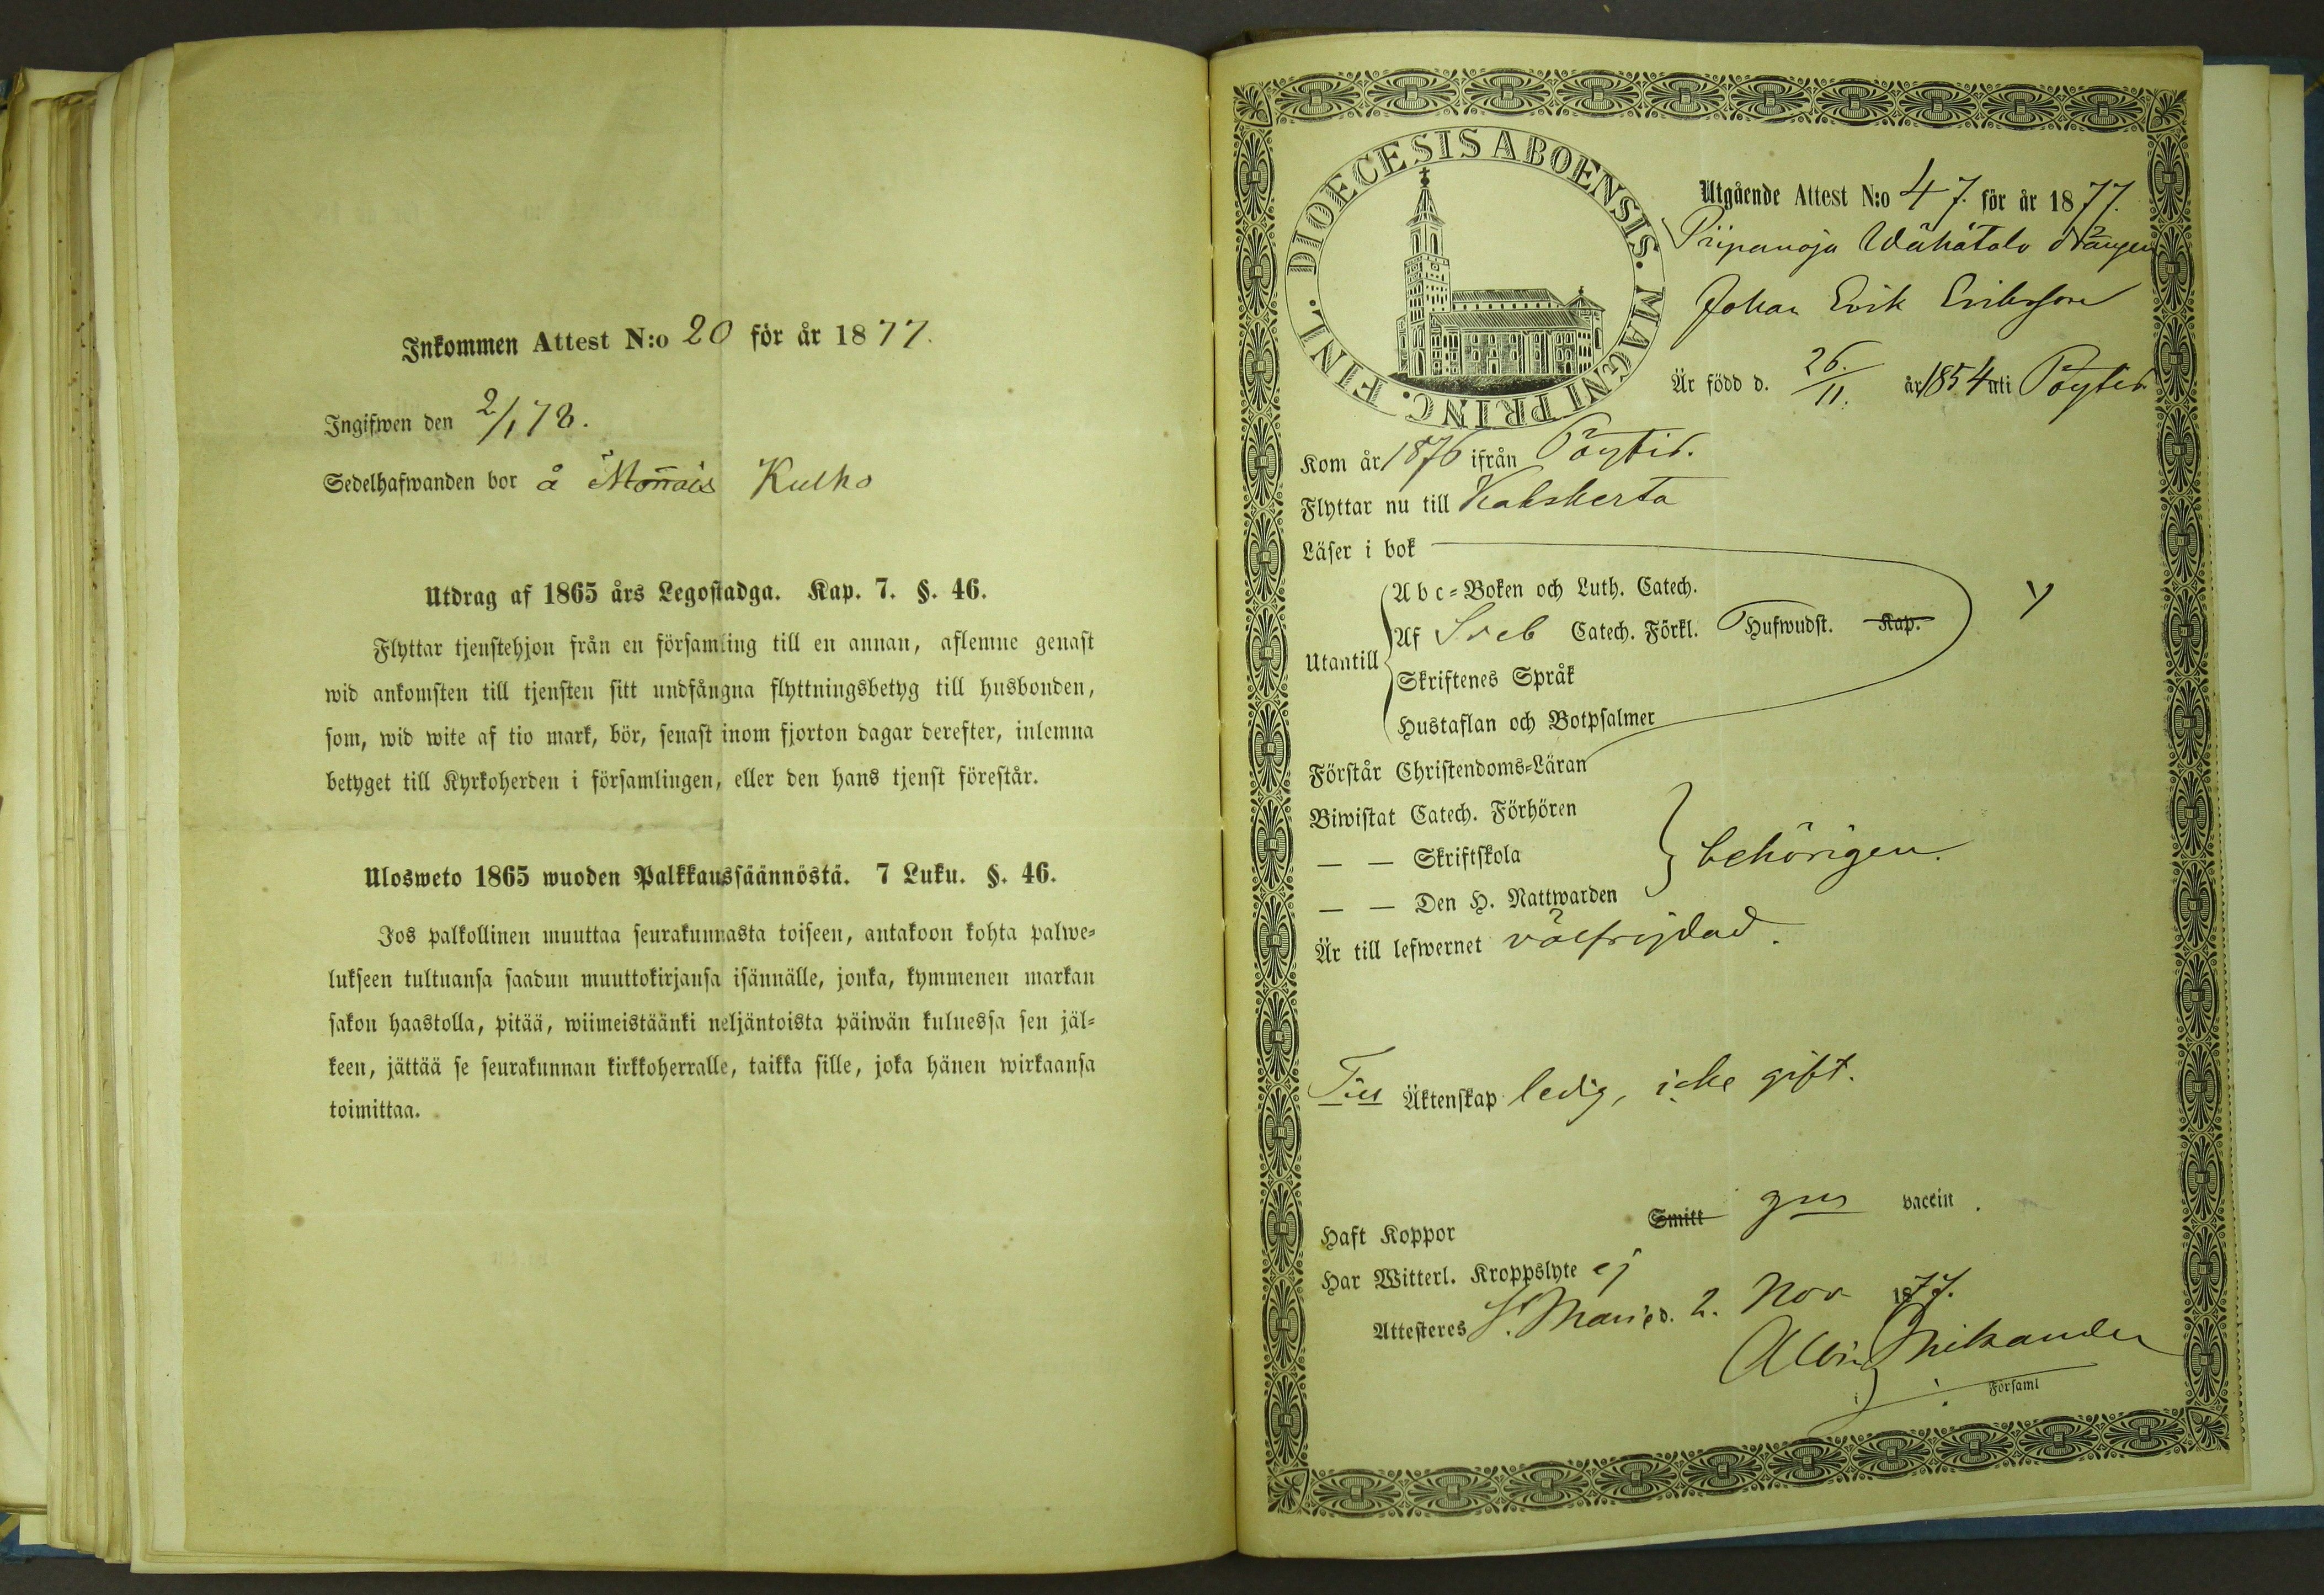 Inkommen Attest N:o 20 för år 1877.
Ingifwen den 2/1 78.
Sedelhafwanden bor å Monnais Kulho
Utdrag af 1865 års Legostadga. Kap. 7. §. 46.
Flyttar tjenstehjon från en församling till en annan, aflemne genast
wid ankomsten till tjensten sitt undfångna flyttningsbetyg till husbonden,
som, wid wite af tio mark, bör, senast inom fjorton dagar derefter, inlemna
betyget till Kyrkoherden i församlingen, eller den hans tjenst förestår.
Ulosweto 1865 wuoden Palkkaussäännöstä. 7 Luku. §. 46.
Jos palkollinen muuttaa seurakunnasta toiseen, antakoon kohta palwe-
lukseen tultuansa saadun muuttokirjansa isännälle, jonka, kymmenen markan
sakon haastolla, pitää, wiimeistäänki neljäntoista päiwän kuluessa sen jäl-
keen, jättää se seurakunnan kirkkoherralle, taikka sille, joka hänen wirkaansa
toimittaa.
DIOECESIS ABOENSIS. MAGNI PRINC. FINL.
Utgående Attest N:o 47. för år 1877.
Piipanoja Wähätalo drängen
Johan Erik Eriksson
Är född d. 26./11. år 1854 uti Pöytis
Kom år 1876 ifrån Pöytis.
Flyttar nu till Kakskerta
Läser i bok
Abc-Boken och Luth. Catech.
Utantill Af Sveb Catech. Förkl. Hufwudst. Kap.
Skriftenes Språk
Hustaflan och Botpsalmer
Förstår Christendoms-Läran
Biwistat Catech. Förhören
— — Skriftskola behörigen.
— — Den H. Nattwarden
Är till lefwernet välfrejdad.
Till Äktenskap ledig, icke gift.
Haft Koppor Smitt gm vaccin.
Har Witterl. Kroppslyte ej
Attesteres S:t Marie d. 2. Nov 1877.
Albin Nikander
i Församl